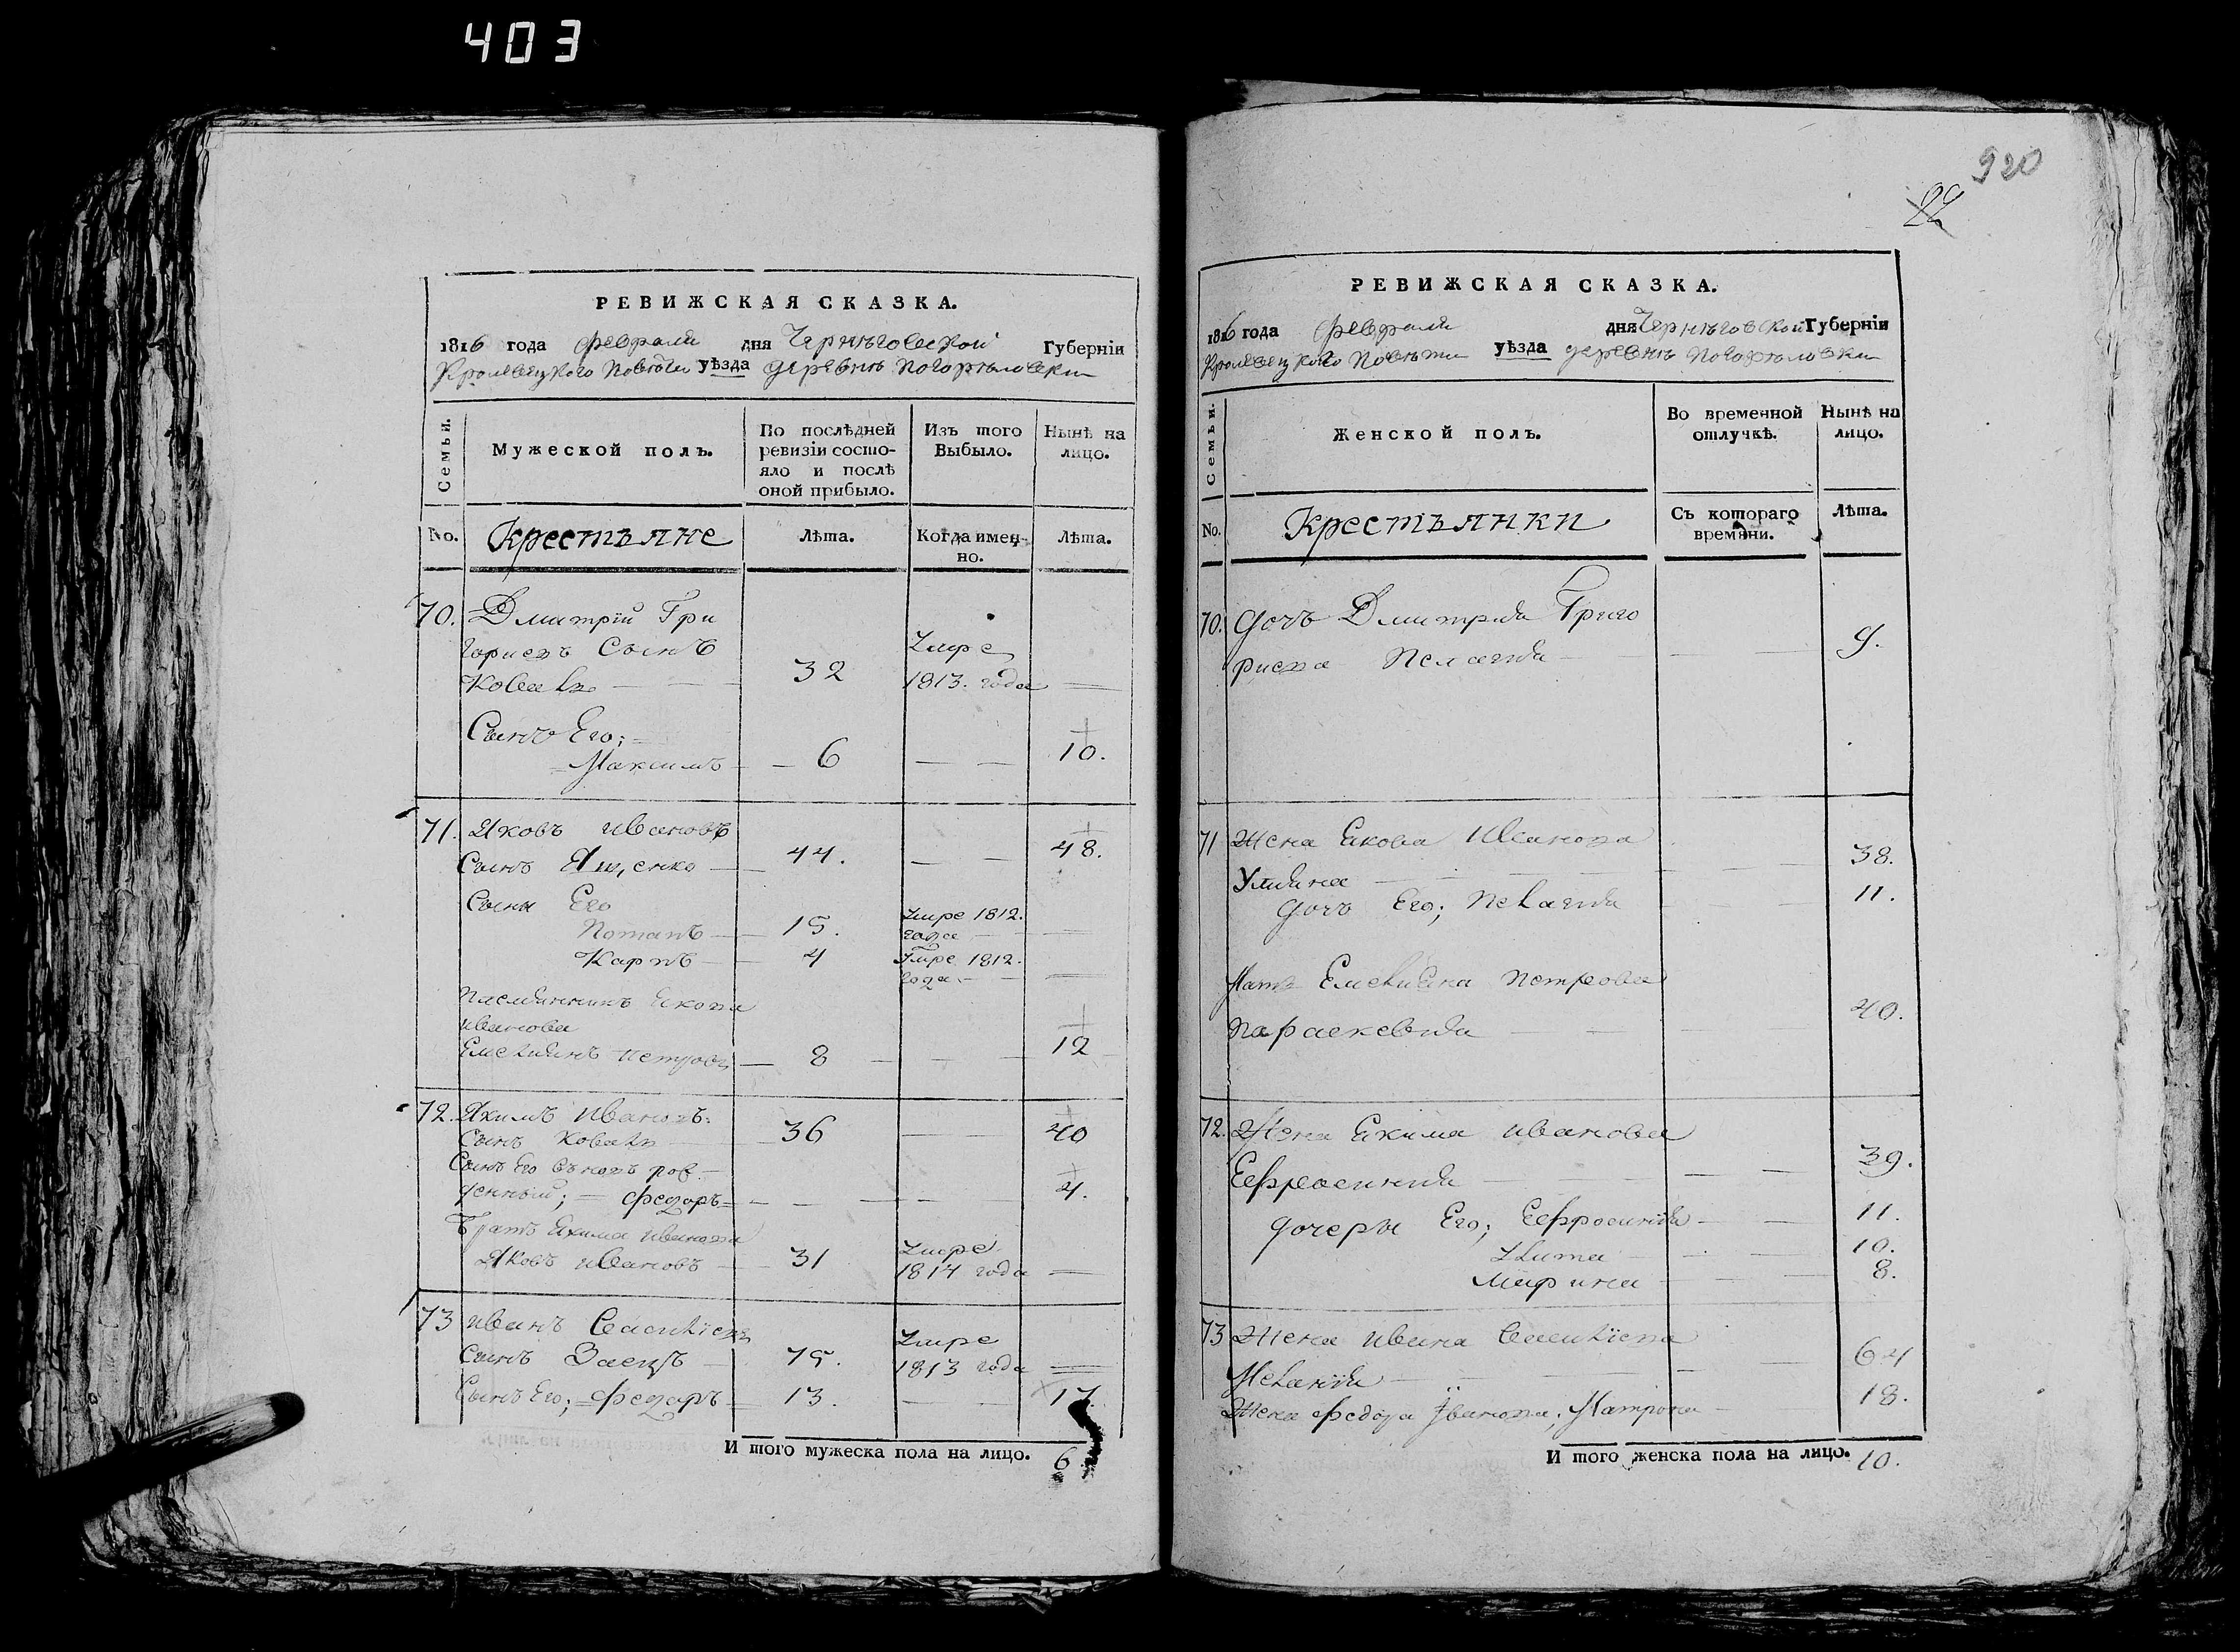 403
РЕВИЖСКАЯ СКАЗКА.
1816 года февраля дня Черниговской Губерніи
Кролевецкого Повѣта уѣзда деревнѣ Погорѣловки
Семьи.
Мужеской полъ.
По послѣдней ревизіи состо-
яло и послѣ
оной прибыло.
Изъ того
Выбыло.
Нынѣ на
лицо.
No.
Крестъяне
Лѣта.
Когда имен-
но.
Лѣта.
70. Дмитрій Гри
горьевъ Сынъ Умре
Коваль 32 1813. года
Сынъ Его;
Максимъ 6 10.
71. Яковъ Ивановъ
Сынъ Ященко 44. 48.
Сыны Его
Потапъ 15. Умре 1812. года
Карпъ 4 Умре 1812. года
Племянникъ Якова
Иванова
Емельянъ Петровъ 8 12
72. Якимъ Ивановъ
Сынъ Коваль 36 40
Сынъ Его въновъ рож
денный; Федоръ 4.
Братъ Якима Иванова
Яковъ Ивановъ 31 Умре 1814 года
73 Иванъ Василіевъ
Сынъ Заецъ 75. Умре 1813 года
Сынъ Его; Федоръ 13. 17.
И того мужеска пола на лицо. 6
920
22
РЕВИЖСКАЯ СКАЗКА.
1816 года февраля дня Черниговской Губерніи
Кролевецкого Повѣта уѣзда деревнѣ Погорѣловки
Семьи.
Женской полъ.
Во временной
отлучкѣ.
Нынѣ на
лицо.
No.
Крестъянки
Съ котораго
времяни.
Лѣта.
70. Дочь Дмитрия Григо
риева Пелагия 9.
71 Жена Якова Иванова
Улияна 38.
Дочь Его; Пелагия 11.
Мать Емельяна Петрова
Параскевия 40.
72. Жена Якима Иванова
Ефросиния 39.
Дочеры Его; Ефросиния 11.
Улита 10.
Марина 8.
73 Жена Ивана Василіева
Меланія 64
Жена Федора Іванова, Матрона 18.
И того женска пола на лицо. 10.